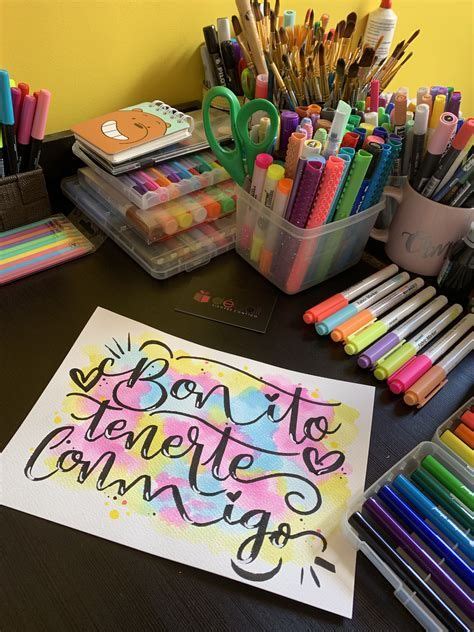 Bonito
tenerte
Conmigo